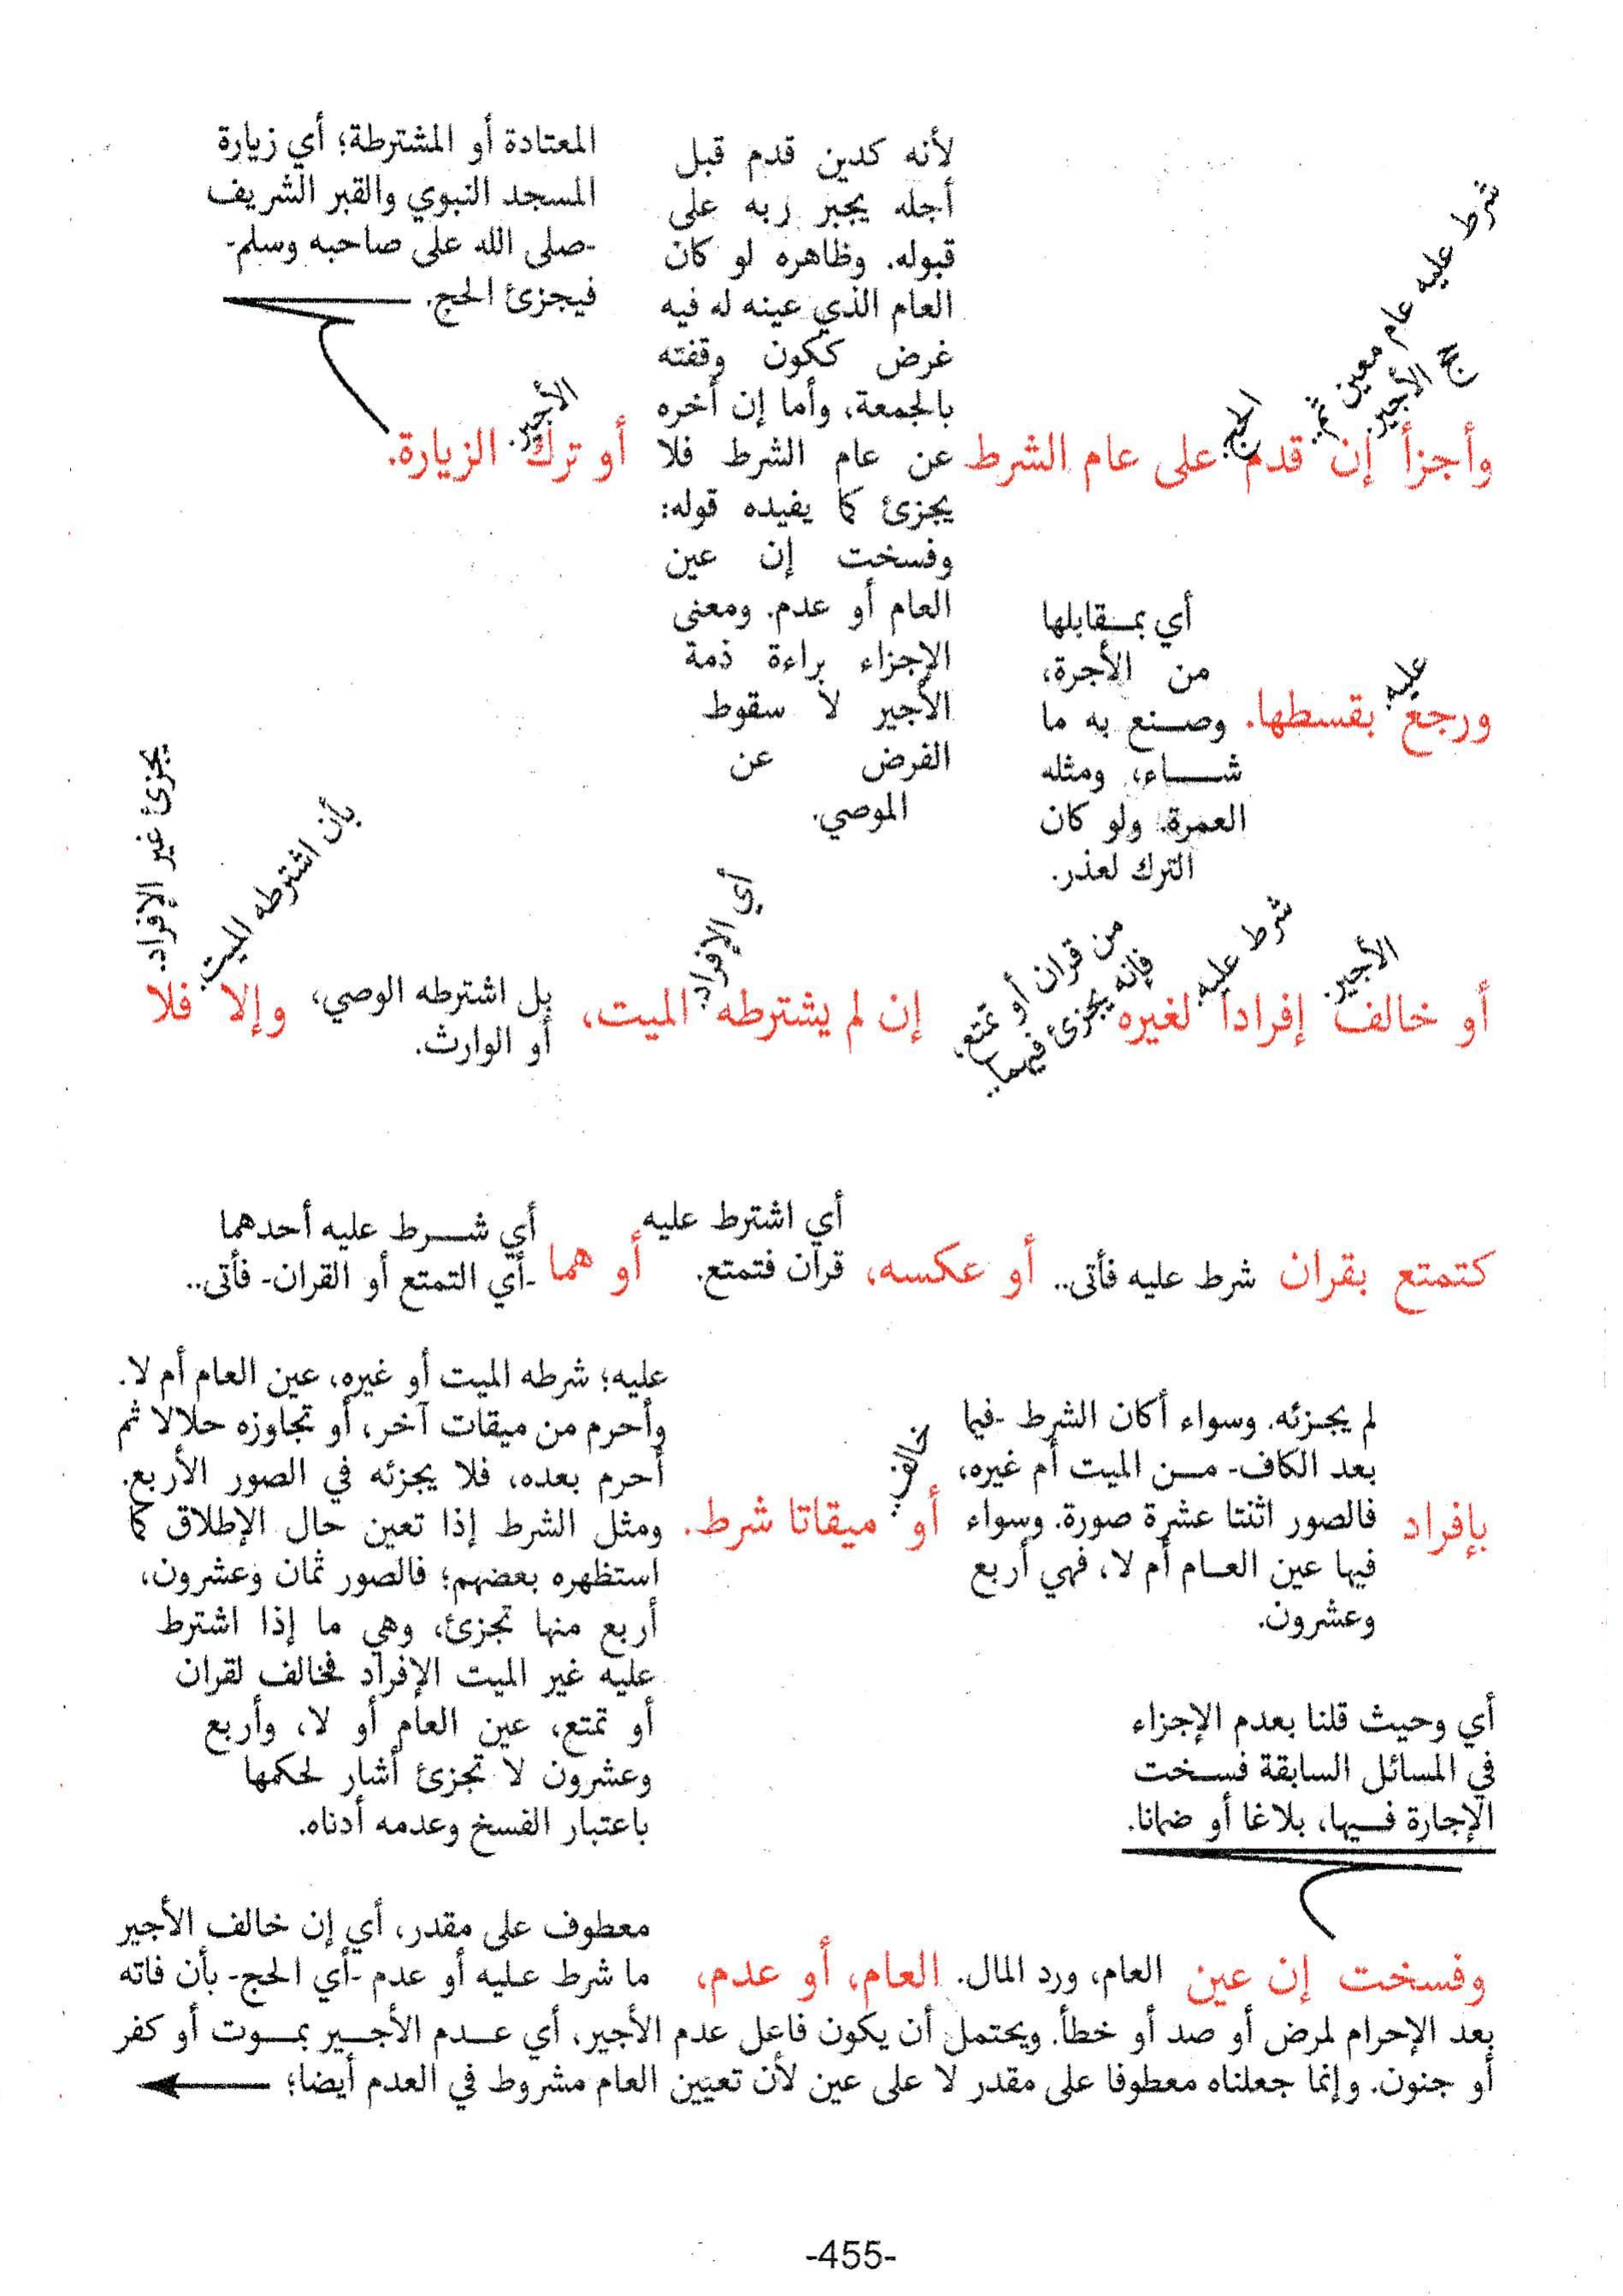 وأجزأ إن
شرط عليه عام معين ثم
حج الأجير
قدم
الحج
على عام الشرط
لأنه كدين قدم قبل
أجله يجبر ربه على
قبوله. وظاهره لو كان
العام الذي عينه له فيه
غرض ككون وقفته
بالجمعة، وأما إن أخره
عن عام الشرط فلا
يجزئ كما يفيده قوله:
وفسخت إن عين
العام أو عدم. ومعنى
الإجزاء براءة ذمة
الأجير لا سقوط
الفرض عن
الموصي.
أو ترك
الأجير
الزيارة.
المعتادة أو المشترطة؛ أي زيارة
المسجد النبوي والقبر الشريف
-صلى الله على صاحبه وسلم-
فيجزئ الحج.
ورجع
عليه
بقسطها.
أي بمقابلها
من الأجرة،
وصنع به ما
شاء، ومثله
العمرة. ولو كان
الترك لعذر.
أو خالف
الأجير
إفرادا
شرط عليه
لغيره
من قران أو تمتع،
فإنه يجزئ فيهما..
إن لم يشترطه
أي الإفراد.
الميت،
بل اشترطه الوصي،
أو الوارث.
وإلا
بأن اشترطه الميت.
فلا
يجزئ غير الإفراد.
كتمتع بقران
شرط عليه فأتى..
أو عكسه،
أي اشترط عليه
قران فتمتع.
أو هما
أي شرط عليه أحدهما
-أي التمتع أو القران- فأتى..
بإفراد
لم يجزئه. وسواء أكان الشرط -فيما
بعد الكاف- من الميت أم غيره،
فالصور اثنتا عشرة صورة. وسواء
فيها عين العام أم لا، فهي أربع
وعشرون.
أو
خالف..
ميقاتا شرط.
عليه؛ شرطه الميت أو غيره، عين العام أم لا.
وأحرم من ميقات آخر، أو تجاوزه حلالا ثم
أحرم بعده، فلا يجزئه في الصور الأربع.
ومثل الشرط إذا تعين حال الإطلاق كما
استظهره بعضهم؛ فالصور ثمان وعشرون،
أربع منها تجزئ، وهي ما إذا اشترط
عليه غير الميت الإفراد فخالف لقران
أو تمتع، عين العام أو لا، وأربع
وعشرون لا تجزئ أشار لحكمها
باعتبار الفسخ وعدمه أدناه.
أي وحيث قلنا بعدم الإجزاء
في المسائل السابقة فسخت
الإجارة فيها، بلاغا أو ضمانا.
وفسخت إن عين
العام، ورد المال.
العام، أو عدم،
معطوف على مقدر، أي إن خالف الأجير
ما شرط عليه أو عدم -أي الحج- بأن فاته
بعد الإحرام لمرض أو صد أو خطأ. ويحتمل أن يكون فاعل عدم الأجير، أي عدم الأجير بموت أو كفر
أو جنون. وإنما جعلناه معطوفا على مقدر لا على عين لأن تعيين العام مشروط في العدم أيضا؛
-455-